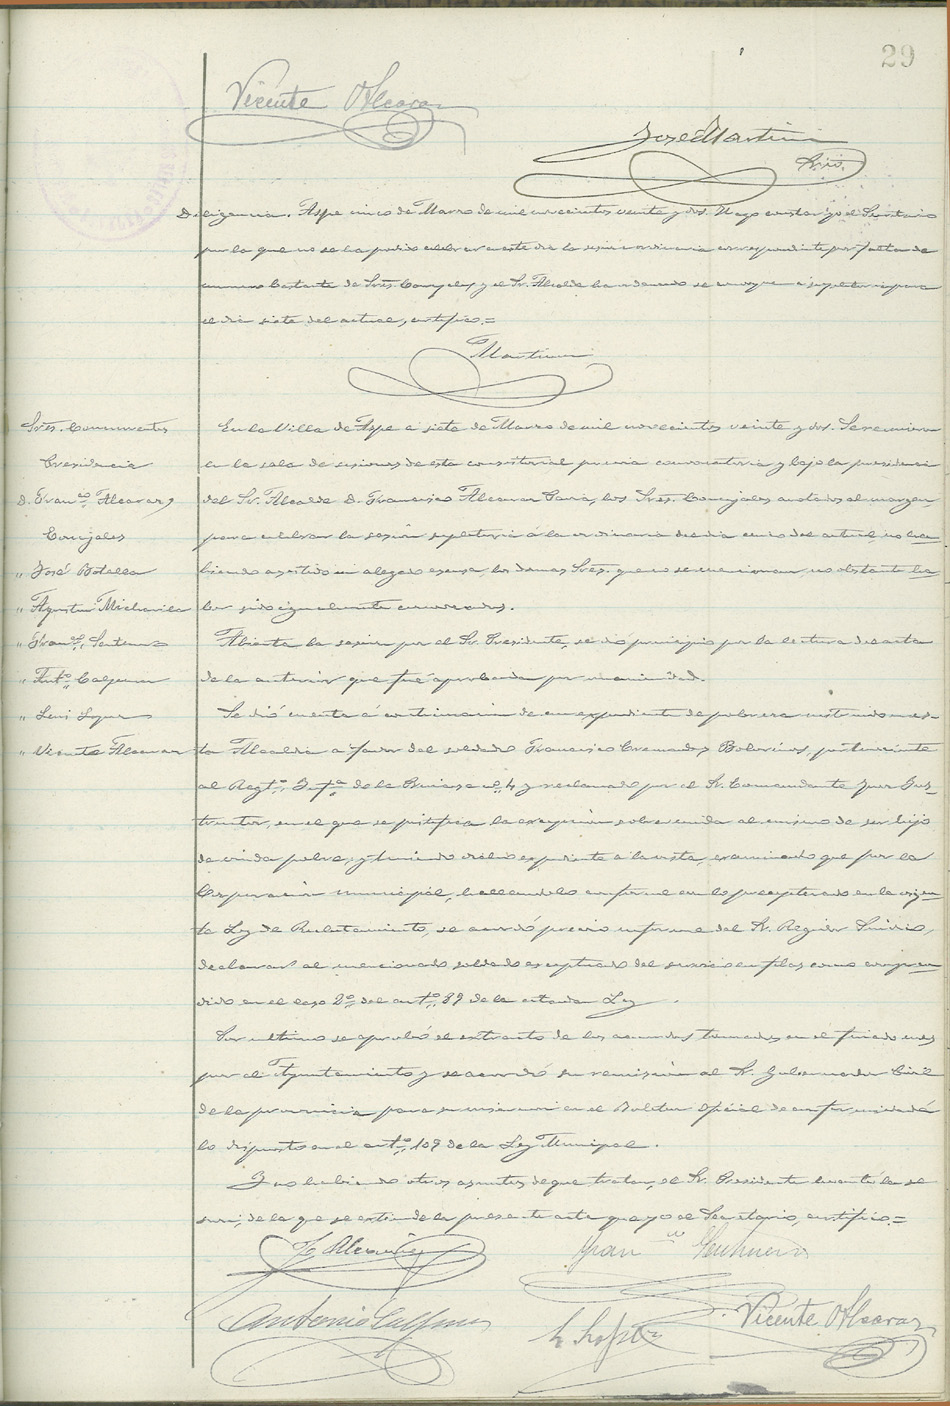 29
Vicente Alcaraz
José Martinez
Srio.
Diligencia. Aspe cinco de Marzo de mil novecientos veinte y dos. Hago constar yo el Secretario
por la que no se ha podido celebrar en este dia la sesion ordinaria correspondiente por falta de
numero bastante de Srēs. Concejales y el Sr. Alcalde ha ordenado se convoque a supletoria para
el dia siete del actual, certifico.=
Martinez
Srēs. Concurrentes
Presidencia
D. Franco Alcaraz
Concejales
" José Botella
" Agustin Michavila
" Franco
" Anto Calpena
" Luis Lopez
" Vicente Alcaraz
En la Villa de Aspe a siete de Marzo de mil novecientos veinte y dos. Se reunieron
en la sala de sesiones de esta consistorial previa convocatoria y bajo la presidencia
del Sr. Alcalde D. Francisco Alcaraz los Srēs. Concejales anotados al margen
para celebrar la sesión supletoria á la ordinaria del dia cinco del actual, no ha-
biendo asistido ni alegado escusa, los demas Srēs. que no se mencionan, no obstante ha-
ber sido igualmente convocados.
Abierta la sesion por el Sr. Presidente, se dió principio por la lectura del acta
de la anterior que fué aprobada por unanimidad.
Se dió cuenta á continuacion de un expediente de pobreza instruido en es-
ta Alcaldia a favor del soldado Francisco Cremades Bolorinos, perteneciente
al Regto. Infa de la Princesa no 4 y reclamado por el Sr. Comandante Juez Ins-
tructor, en el que se justifica la excepcion sobrevenida al mismo de ser hijo
de viuda pobre, y teniendo dicho expediente a la vista, examinado que fue por la
Corporación municipal, hallandolo conforme con lo preceptuado en la vigen-
te Ley de Reclutamiento, se acordó previo informe del Sr. Regidor Sindico,
declarar al mencionado soldado exceptuado del servicio en filas como compren-
dido en el caso 2o del arto 89 de la citada Ley.
Por ultimo se aprobó el extracto de los acuerdos tomados en el finado mes
por el Ayuntamiento y se acordó su remisión al Sr. Gobernador Civil
de la provincia para su insercion en el Boletin Oficial de conformidad á
lo dispuesto en el arto 109 de la Ley Municipal.
Y no habiendo otros asuntos de que tratar, el Sr. Presidente levantó la se-
sion, de la que se extiende la presente acta que yo el Secretario, certifico.=
F. Alcaraz
Franco
Antonio Calpena
L. Lopez
Vicente Alcaraz